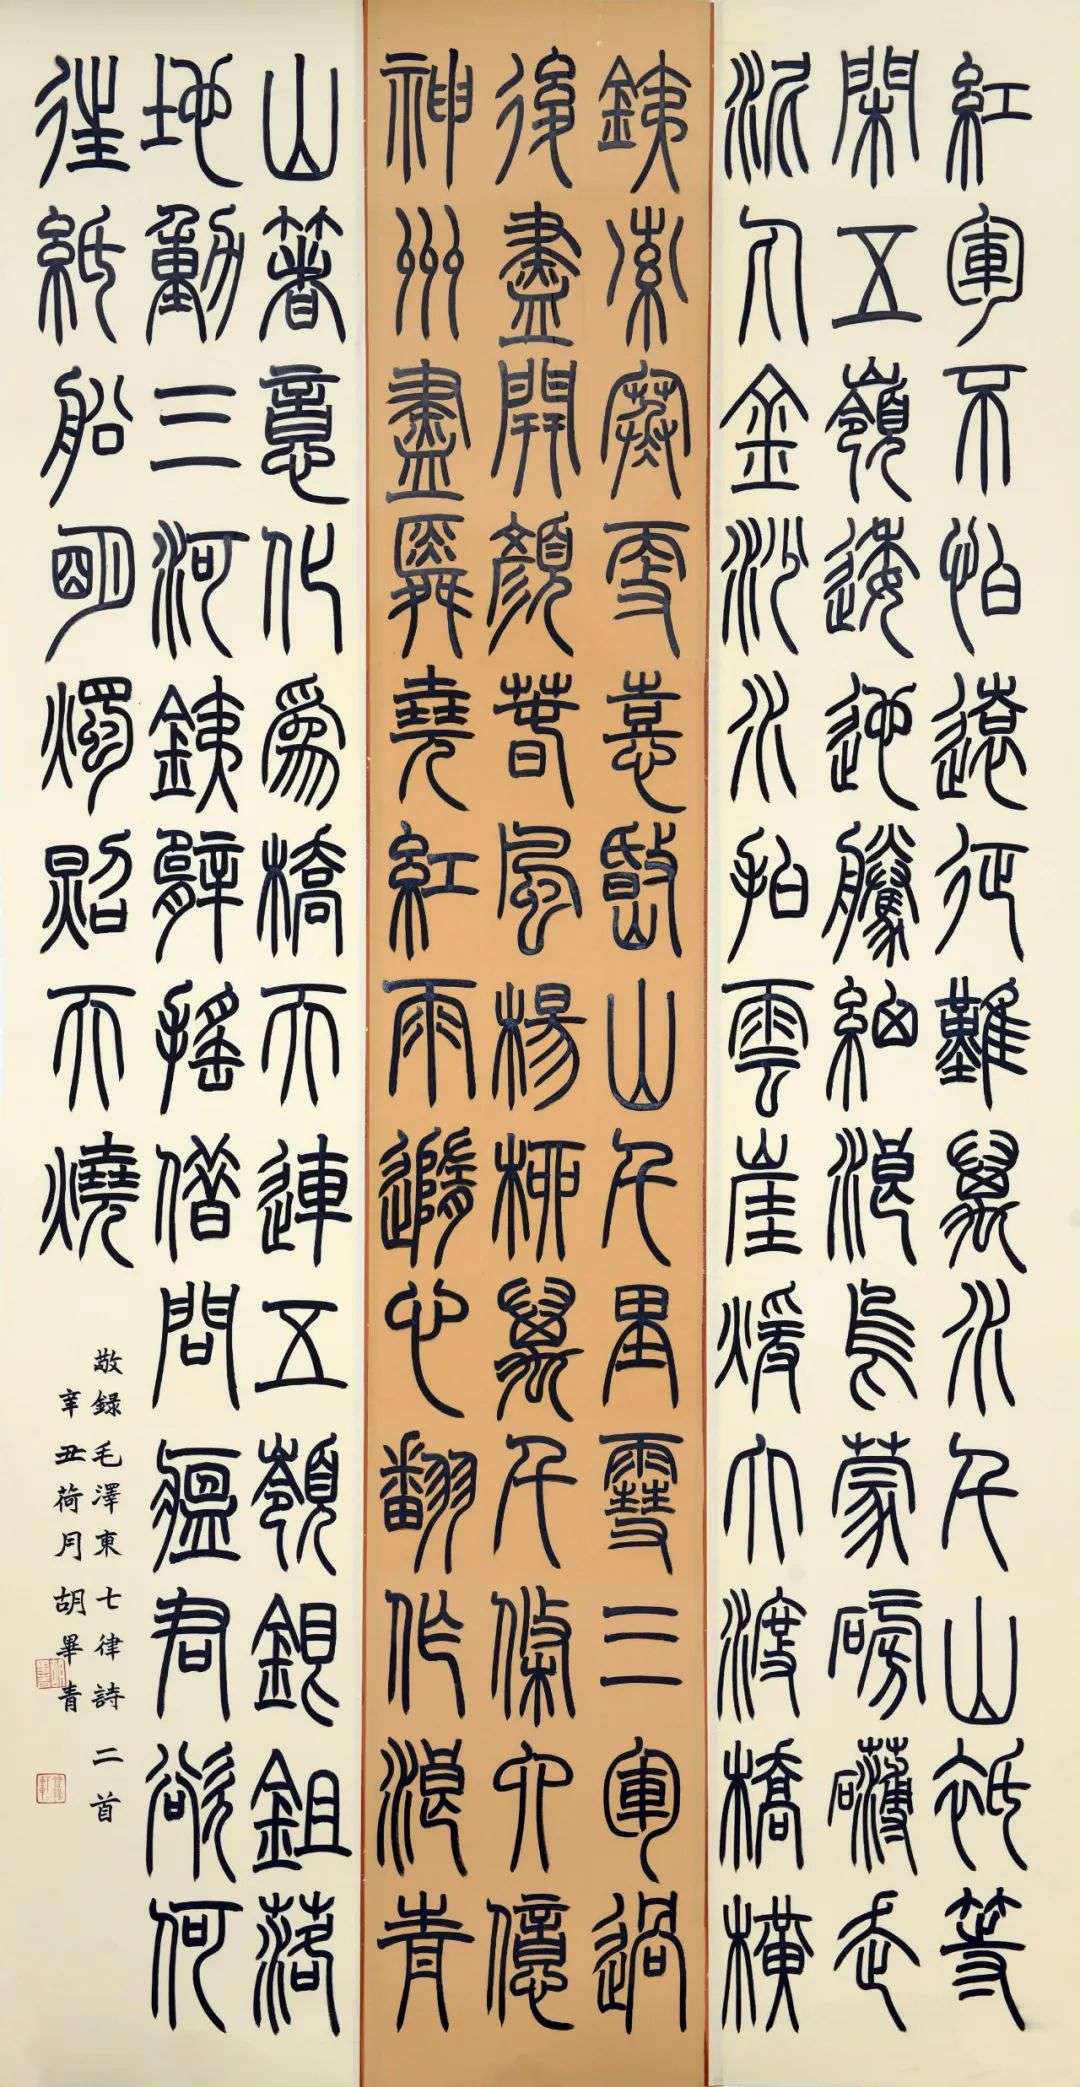 紅軍不怕遠征難萬水千山祇等
閑五嶺逶迤騰細浪烏蒙磅礴走
泥丸金沙水拍雲崖暖大渡橋橫
銕索寒更喜岷山千里雪三軍過
後盡開顏春風楊柳萬千條六億
神州盡舜堯紅雨隨心翻作浪青
山著意化爲橋天連五嶺銀鉏落
地動三河銕臂搖借問瘟君欲何
往紙船明燭照天燒
敬録毛澤東七律詩二首
辛丑荷月胡畢青